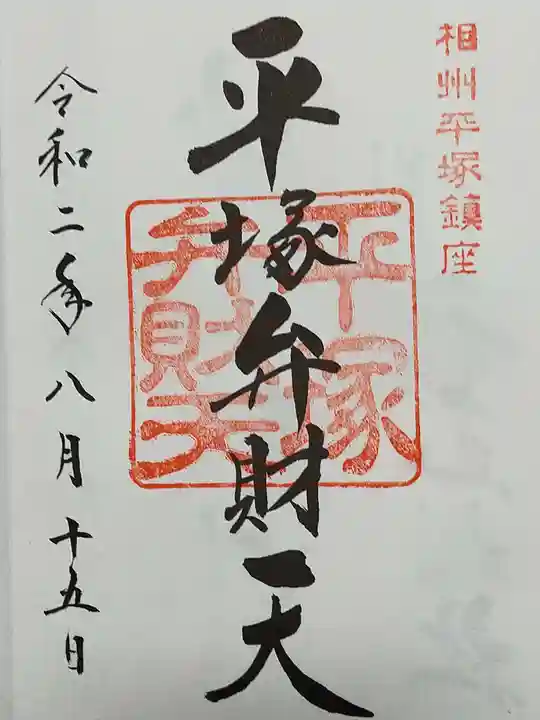 相州平塚鎮座
平塚弁財天
平塚
弁財天
令和二年八月十五日